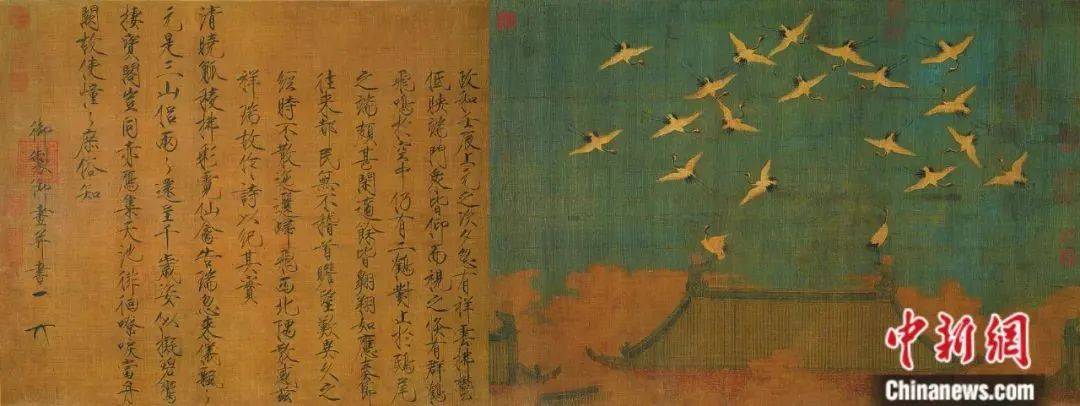 政和壬辰上元之次夕忽有祥雲拂鬱
低映端門衆皆仰而視之倏有群鶴
飛鳴於空中仍有二鶴對止於鴟尾
之端頗甚閑適餘皆翱翔如應奏節
往来都民無不稽首瞻望歎異久之
經時不散迤邐歸飛西北隅散感茲
祥瑞故作詩以紀其實
清曉觚稜拂彩霓仙禽告瑞忽来儀飄〻
元是三山侶兩〻還呈千歲姿似擬碧鸞
棲寶閣豈同赤鴈集天池徘徊嘹唳當丹
闕故使憧〻庶俗知
御製御畫并書
中新網
Chinanews.com